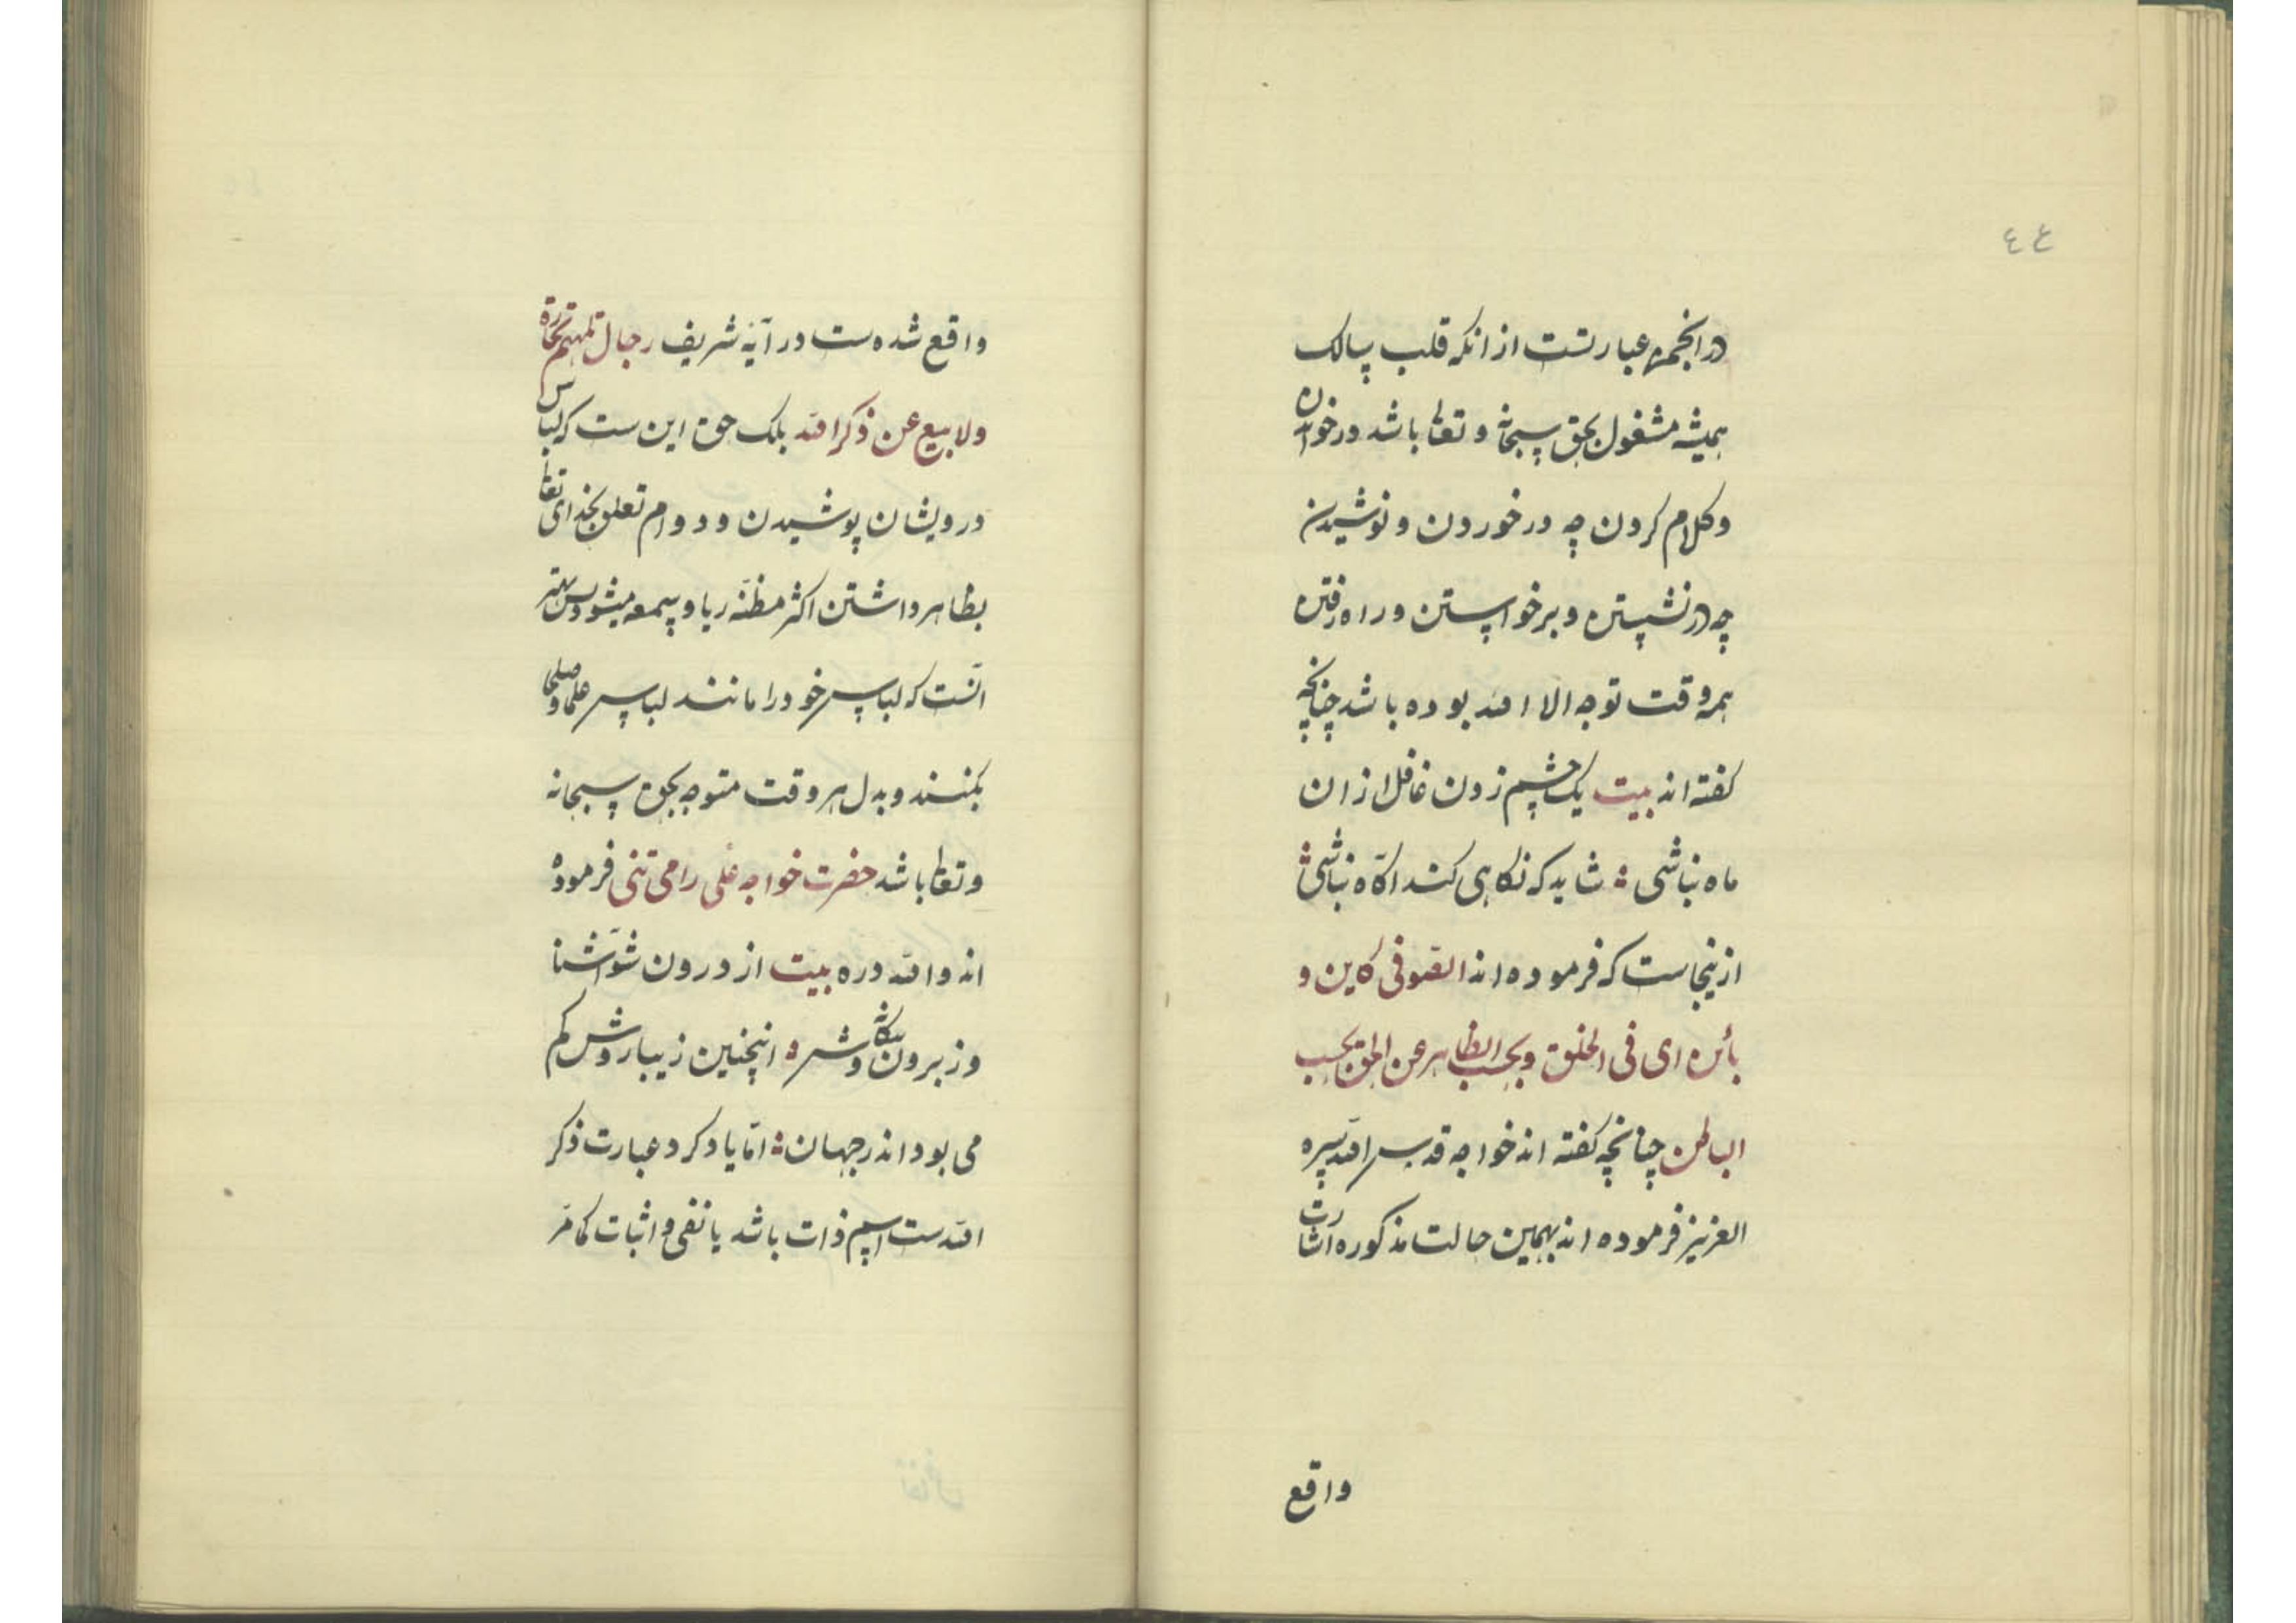 ٤٤
در انجمن عبارتست از انکه قلب سالک
همیشه مشغول بحق سبحانه و تعالی باشد در خواندن
و کلام کردن چه در خوردن و نوشیدن
چه در نشستن و برخواستن و راه رفتن
همه وقت توجه الا الله بوده باشد چنانچه
کفته اند بیت یک چشم زدن غافل ازان
ماه نباشی ؛ شاید که نکاهی کند اکاه نباشی ؛
ازینجاست که فرموده اند الصوفی کاین و
بائن ای فی الخلق و بحسب الظاهر عن الحق بحسب
الباطن چنانچه کفته اند خواجه قدس الله سره
العزیز فرموده اند بهمین حالت مذکوره اشارت
واقع
واقع شده ست در آیه شریف رجال لا تلهیهم تجارة
ولا بیع عن ذکر الله بلک حق این ست که لباس
درویشان پوشیدن و دوام تعلق بخدای تعالی
بظاهر داشتن اکثر مظنه ریا و سمعه میشود پس بهتر
انست که لباس خود را مانند لباس علما و صلحا
بکنند و بدل هر وقت متوجه بحق سبحانه
و تعالی باشد حضرت خواجه علی رامی تنی فرموده
اند والله دره بیت از درون شو آشنا
وز برون بیکانه وش ؛ اینچنین زیبا روش کم
می بود اندر جهان ؛ اما یاد کرد عبارت ذکر
الله ست اسم ذات باشد یا نفی و اثبات کما مر